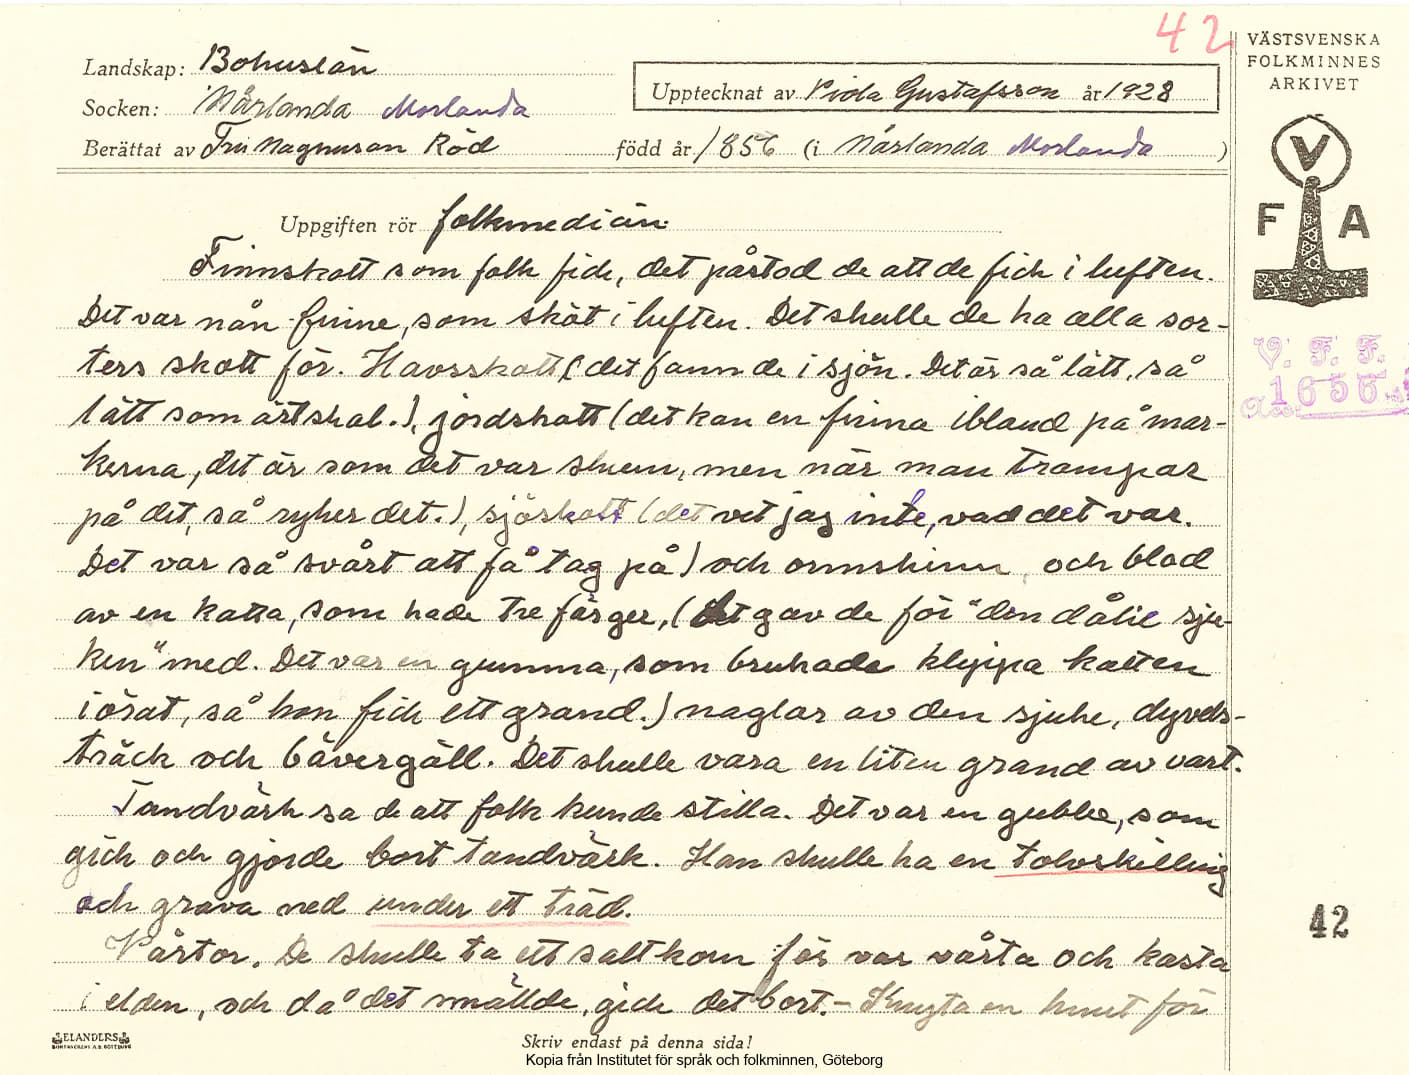 42
VÄSTSVENSKA
FOLKMINNES
ARKIVET
Landskap: Bohuslän
Socken: Mårlanda Morlanda
Upptecknat av Frida Gustafsson år 1928
Berättat av Fru Magnuson Röd född år 1856 (i Mårlanda Morlanda)
V
F A
Uppgiften rör folkmedicin.
Finnskott som folk fick, det påstod de att de fick i luften.
Det var nån finne, som sköt i luften. Det skulle de ha alla sor-
ters skott för. Havsskott (det fann de i sjön. Det är så lätt, så
lätt som ärtskal.), jordskott (det kan en finna ibland på mar-
kerna, det är som det var skum, men när man trampar
på det, så ryker det.), sjöskott (det vet jag inte, vad det var.
Det var så svårt att få tag på) och ormskinn och blod
av en katta, som hade tre färger, (det gav de för "den dålie sju-
ken" med. Det var en gumma, som brukade klippa katten
i örat, så hon fick ett grand.) naglar av den sjuke, dyvels-
träck och bävergäll. Det skulle vara en liten grand av vart.
Tandvärk sa de att folk kunde stilla. Det var en gubbe, som
gick och gjorde bort tandvärk. Han skulle ha en tolvskilling
och grava ned under ett träd.
Vårtor. De skulle ta ett saltkorn för var vårta och kasta
i elden, och då det smällde, gick det bort. – Knyta en knut för
V. F. F.
Acc. 1656
42
ELANDERS
BOKTRYCKERI A.B. GÖTEBORG
Skriv endast på denna sida!
Kopia från Institutet för språk och folkminnen, Göteborg